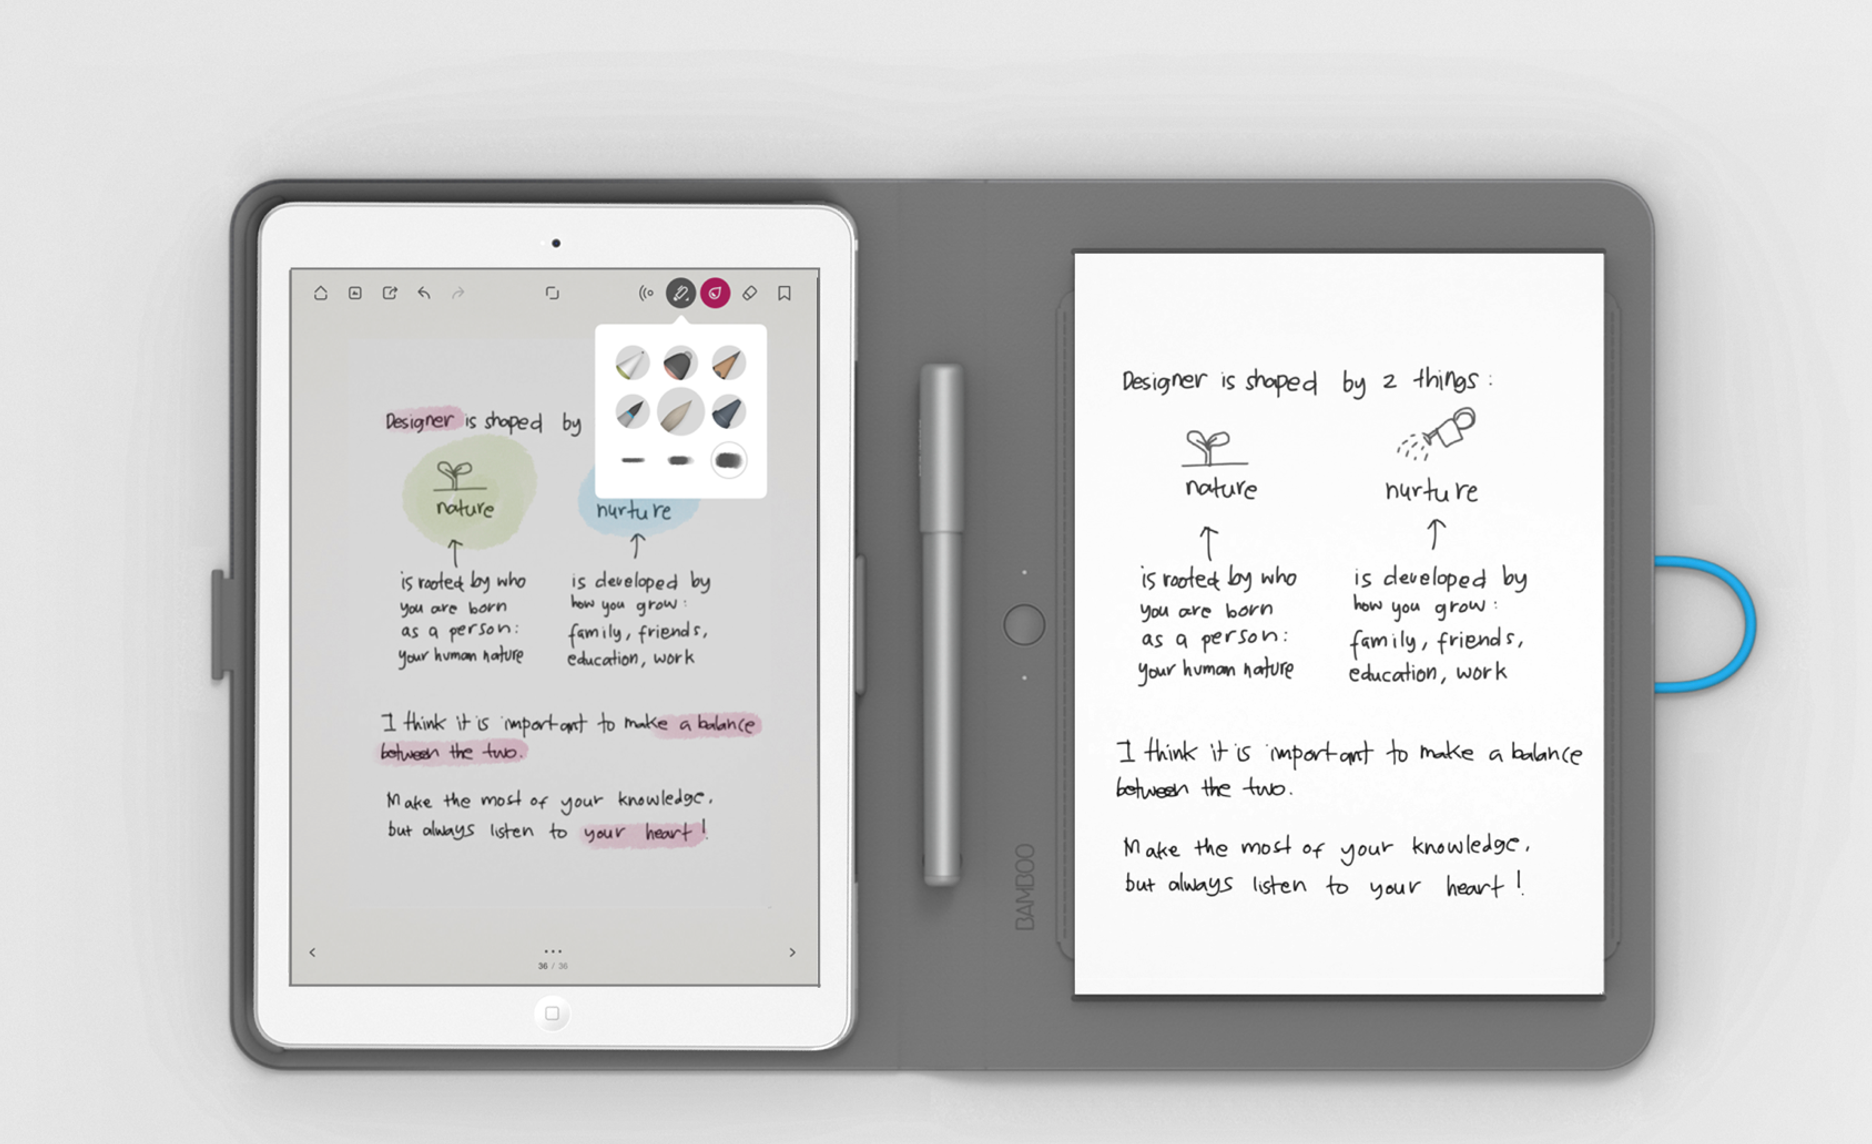 Designer is shaped by
nature
nurture
is rooted by who
you are born
as a person:
your human nature
is developed by
how you grow:
family, friends,
education, work
I think it is important to make a balance
between the two.
Make the most of your knowledge,
but always listen to your heart!
36 / 36
BAMBOO
Designer is shaped by 2 things:
nature
nurture
is rooted by who
you are born
as a person:
your human nature
is developed by
how you grow:
family, friends,
education, work
I think it is important to make a balance
between the two.
Make the most of your knowledge,
but always listen to your heart!